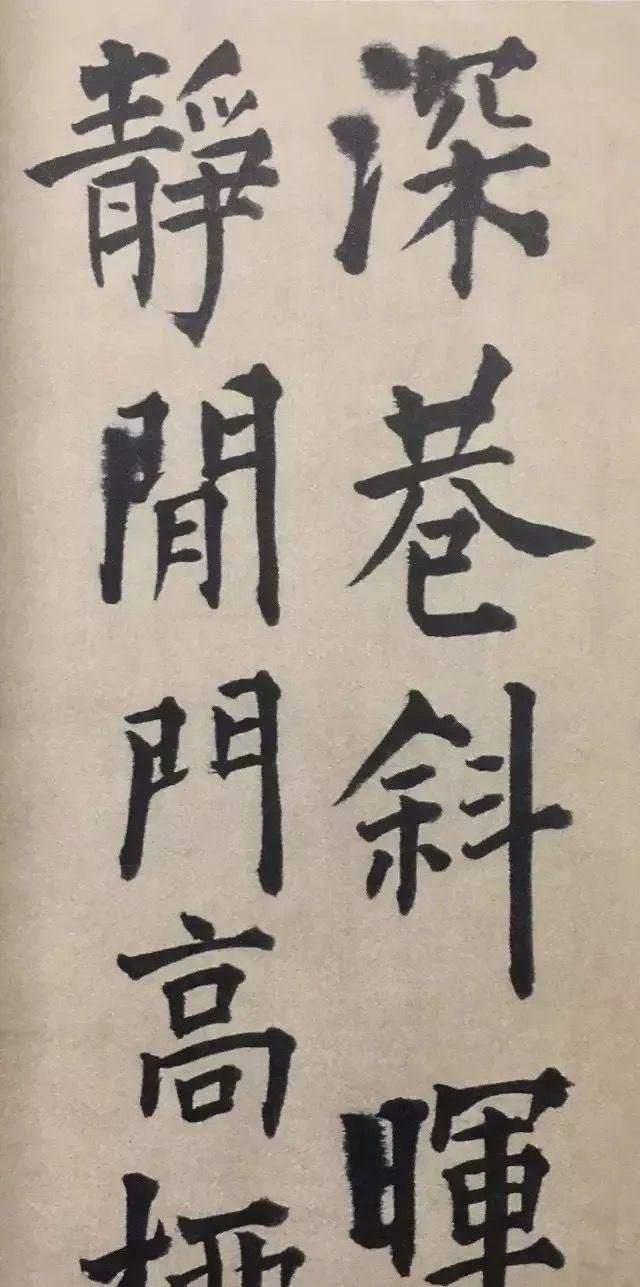 深巷斜暉
靜閒門高